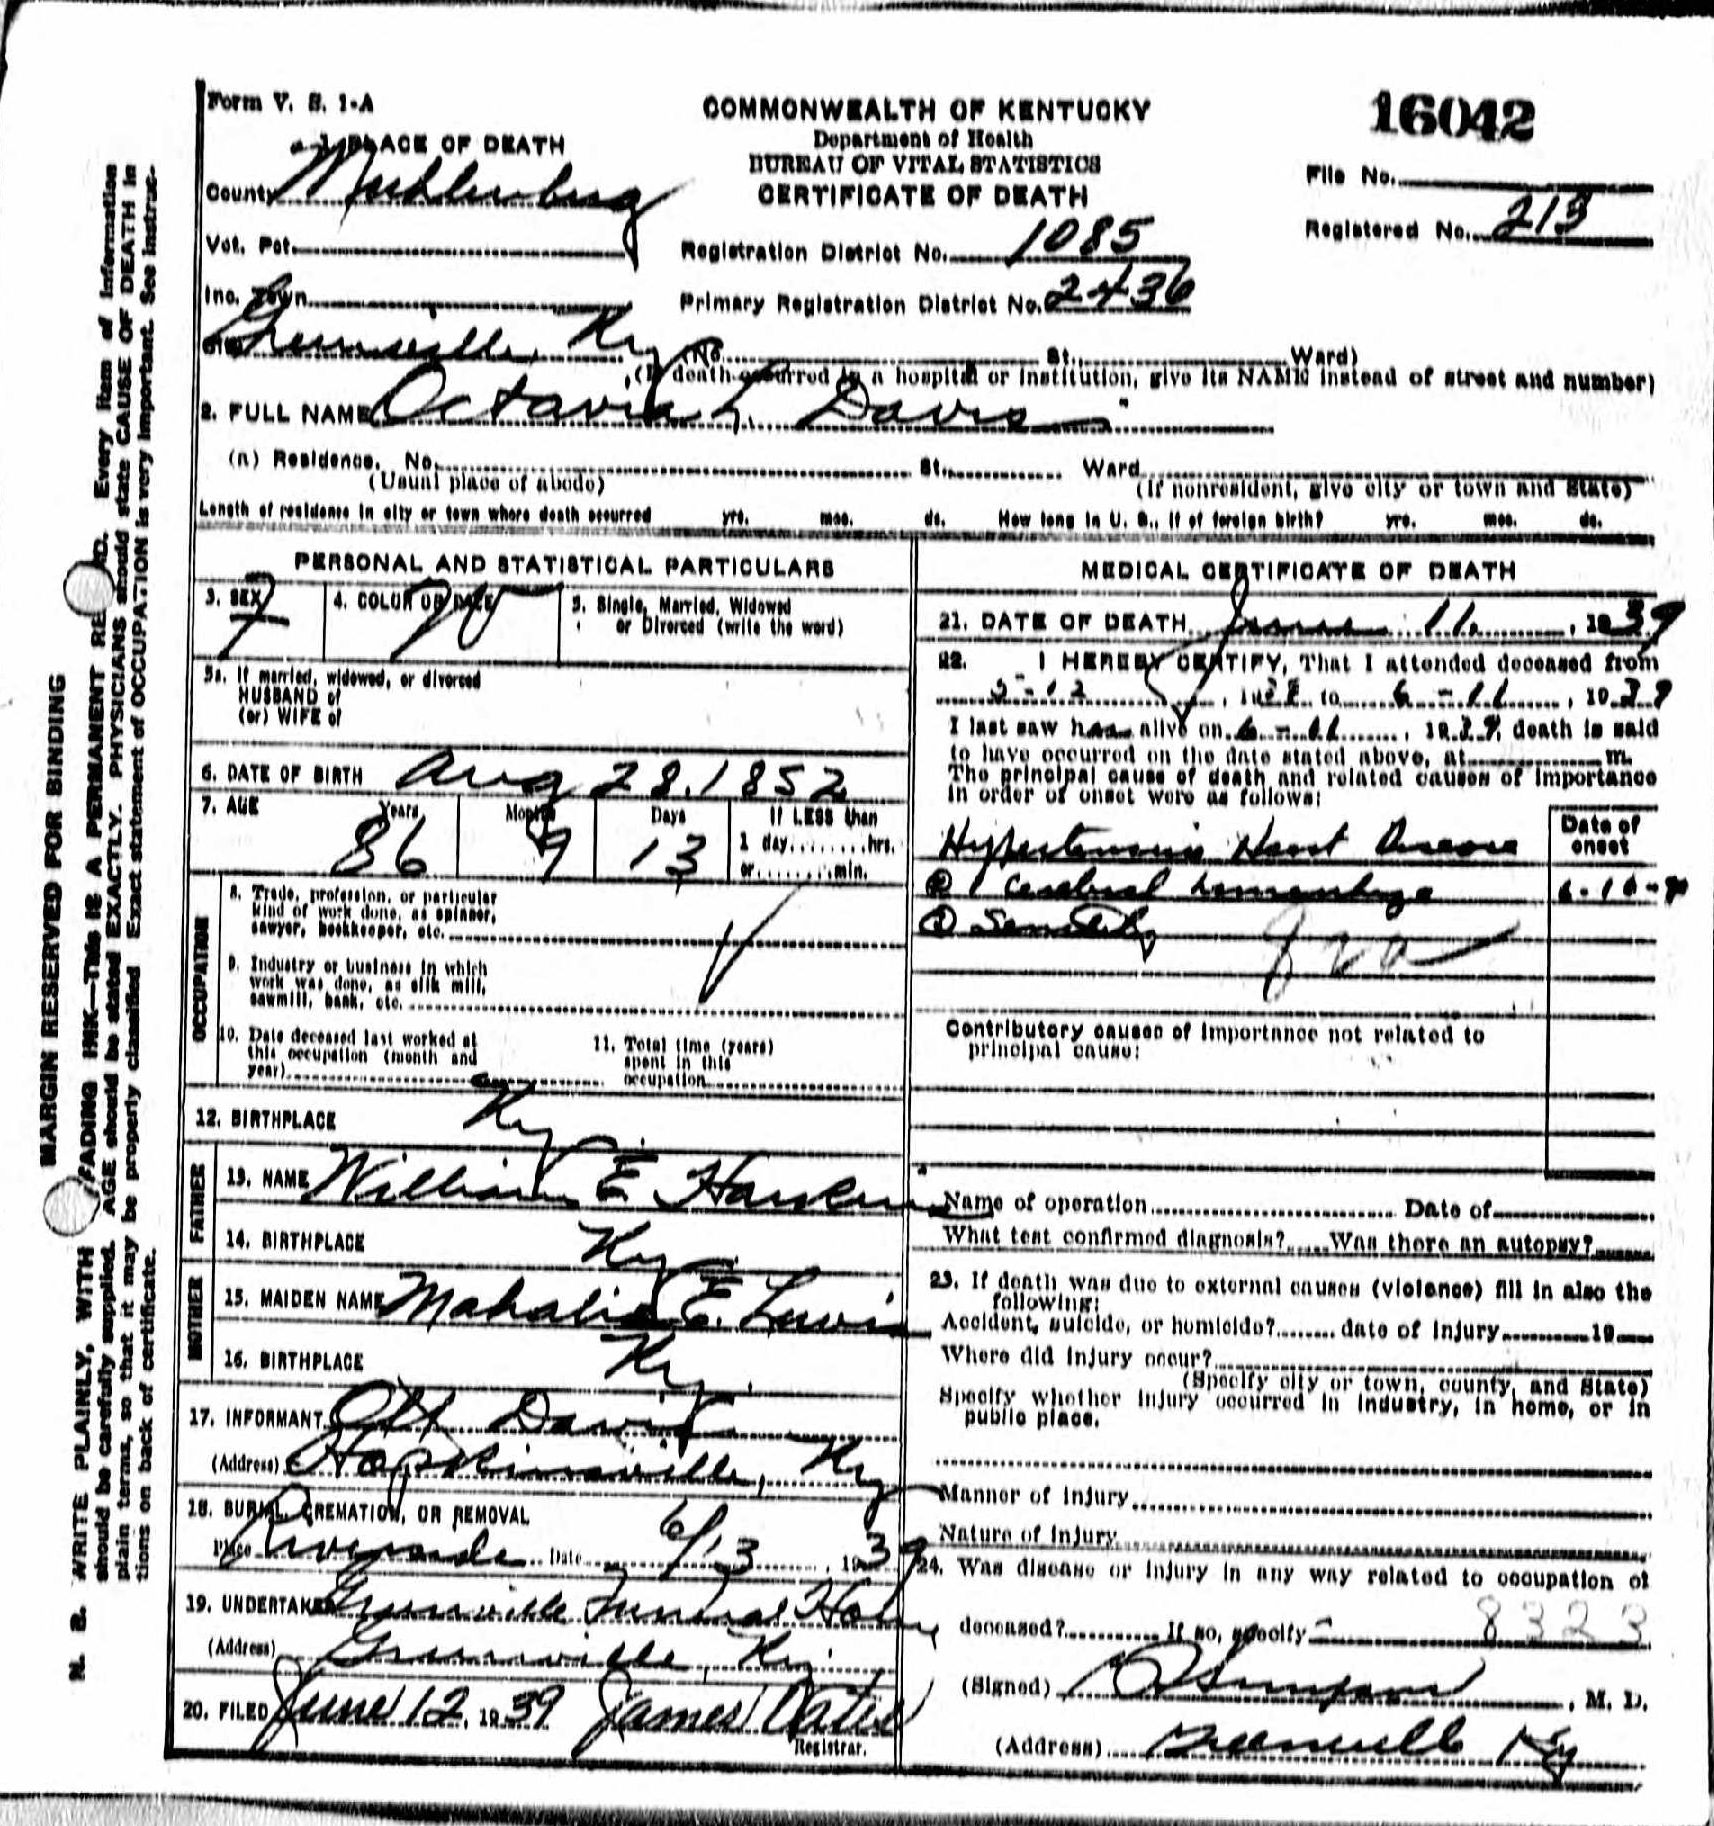 Form V. S. 1-A
COMMONWEALTH OF KENTUCKY
16042
1. PLACE OF DEATH
Department of Health
BUREAU OF VITAL STATISTICS
CERTIFICATE OF DEATH
File No.
County Muhlenberg
Registered No. 213
Vot. Pct.
Registration District No. 1085
Inc. Town
Primary Registration District No. 2436
City Greenville, Ky (No. St., Ward)
(If death occurred in a hospital or institution, give its NAME instead of street and number)
2. FULL NAME Octavia L. Davis
(a) Residence. No. St., Ward
(Usual place of abode) (If nonresident, give city or town and State)
Length of residence in city or town where death occurred yrs. mos. ds. How long in U. S., if of foreign birth? yrs. mos. ds.
PERSONAL AND STATISTICAL PARTICULARS
3. SEX F
4. COLOR OR RACE W
5. Single, Married, Widowed
or Divorced (write the word)
5a. If married, widowed, or divorced
HUSBAND of
(or) WIFE of
6. DATE OF BIRTH Aug 28, 1852
7. AGE Years Months Days If LESS than
86 9 13 1 day, hrs.
or min.
OCCUPATION
8. Trade, profession, or particular
kind of work done, as spinner,
sawyer, bookkeeper, etc.
9. Industry or business in which
work was done, as silk mill,
sawmill, bank, etc.
10. Date deceased last worked at
this occupation (month and
year)
11. Total time (years)
spent in this
occupation
12. BIRTHPLACE Ky
FATHER
13. NAME William E.
14. BIRTHPLACE Ky
MOTHER
15. MAIDEN NAME Mahalia E. Lewis
16. BIRTHPLACE Ky.
17. INFORMANT Davis
(Address) Hopkinsville, Ky
18. BURIAL, CREMATION, OR REMOVAL
Place Riverside Date 6/13, 1939
19. UNDERTAKER Greenville Funeral Home
(Address) Greenville, Ky.
20. FILED June 12, 1939 James Oates
Registrar.
MEDICAL CERTIFICATE OF DEATH
21. DATE OF DEATH June 11, 1939
22. I HEREBY CERTIFY, That I attended deceased from
5-12, 19 to 6-11, 1939
I last saw her alive on 6-11, 1939, death is said
to have occurred on the date stated above, at m.
The principal cause of death and related causes of importance
in order of onset were as follows:
Date of
onset
Hypertensive Heart Disease
Cerebral hemorrhage 6-10-
Senility
Contributory causes of importance not related to
principal cause:
Name of operation Date of
What test confirmed diagnosis? Was there an autopsy?
23. If death was due to external causes (violence) fill in also the
following:
Accident, suicide, or homicide? date of injury 19
Where did injury occur?
(Specify city or town, county, and State)
Specify whether injury occurred in industry, in home, or in
public place.
Manner of injury
Nature of injury
24. Was disease or injury in any way related to occupation of
deceased? If so, specify 8323
(Signed) Simpson, M. D.
(Address) Greenville Ky
MARGIN RESERVED FOR BINDING
N. B. WRITE PLAINLY, WITH FADING INK—THIS IS A PERMANENT RECORD. Every item of information
should be carefully supplied. AGE should be stated EXACTLY. PHYSICIANS should state CAUSE OF DEATH in
plain terms, so that it may be properly classified. Exact statement of OCCUPATION is very important. See instruc-
tions on back of certificate.